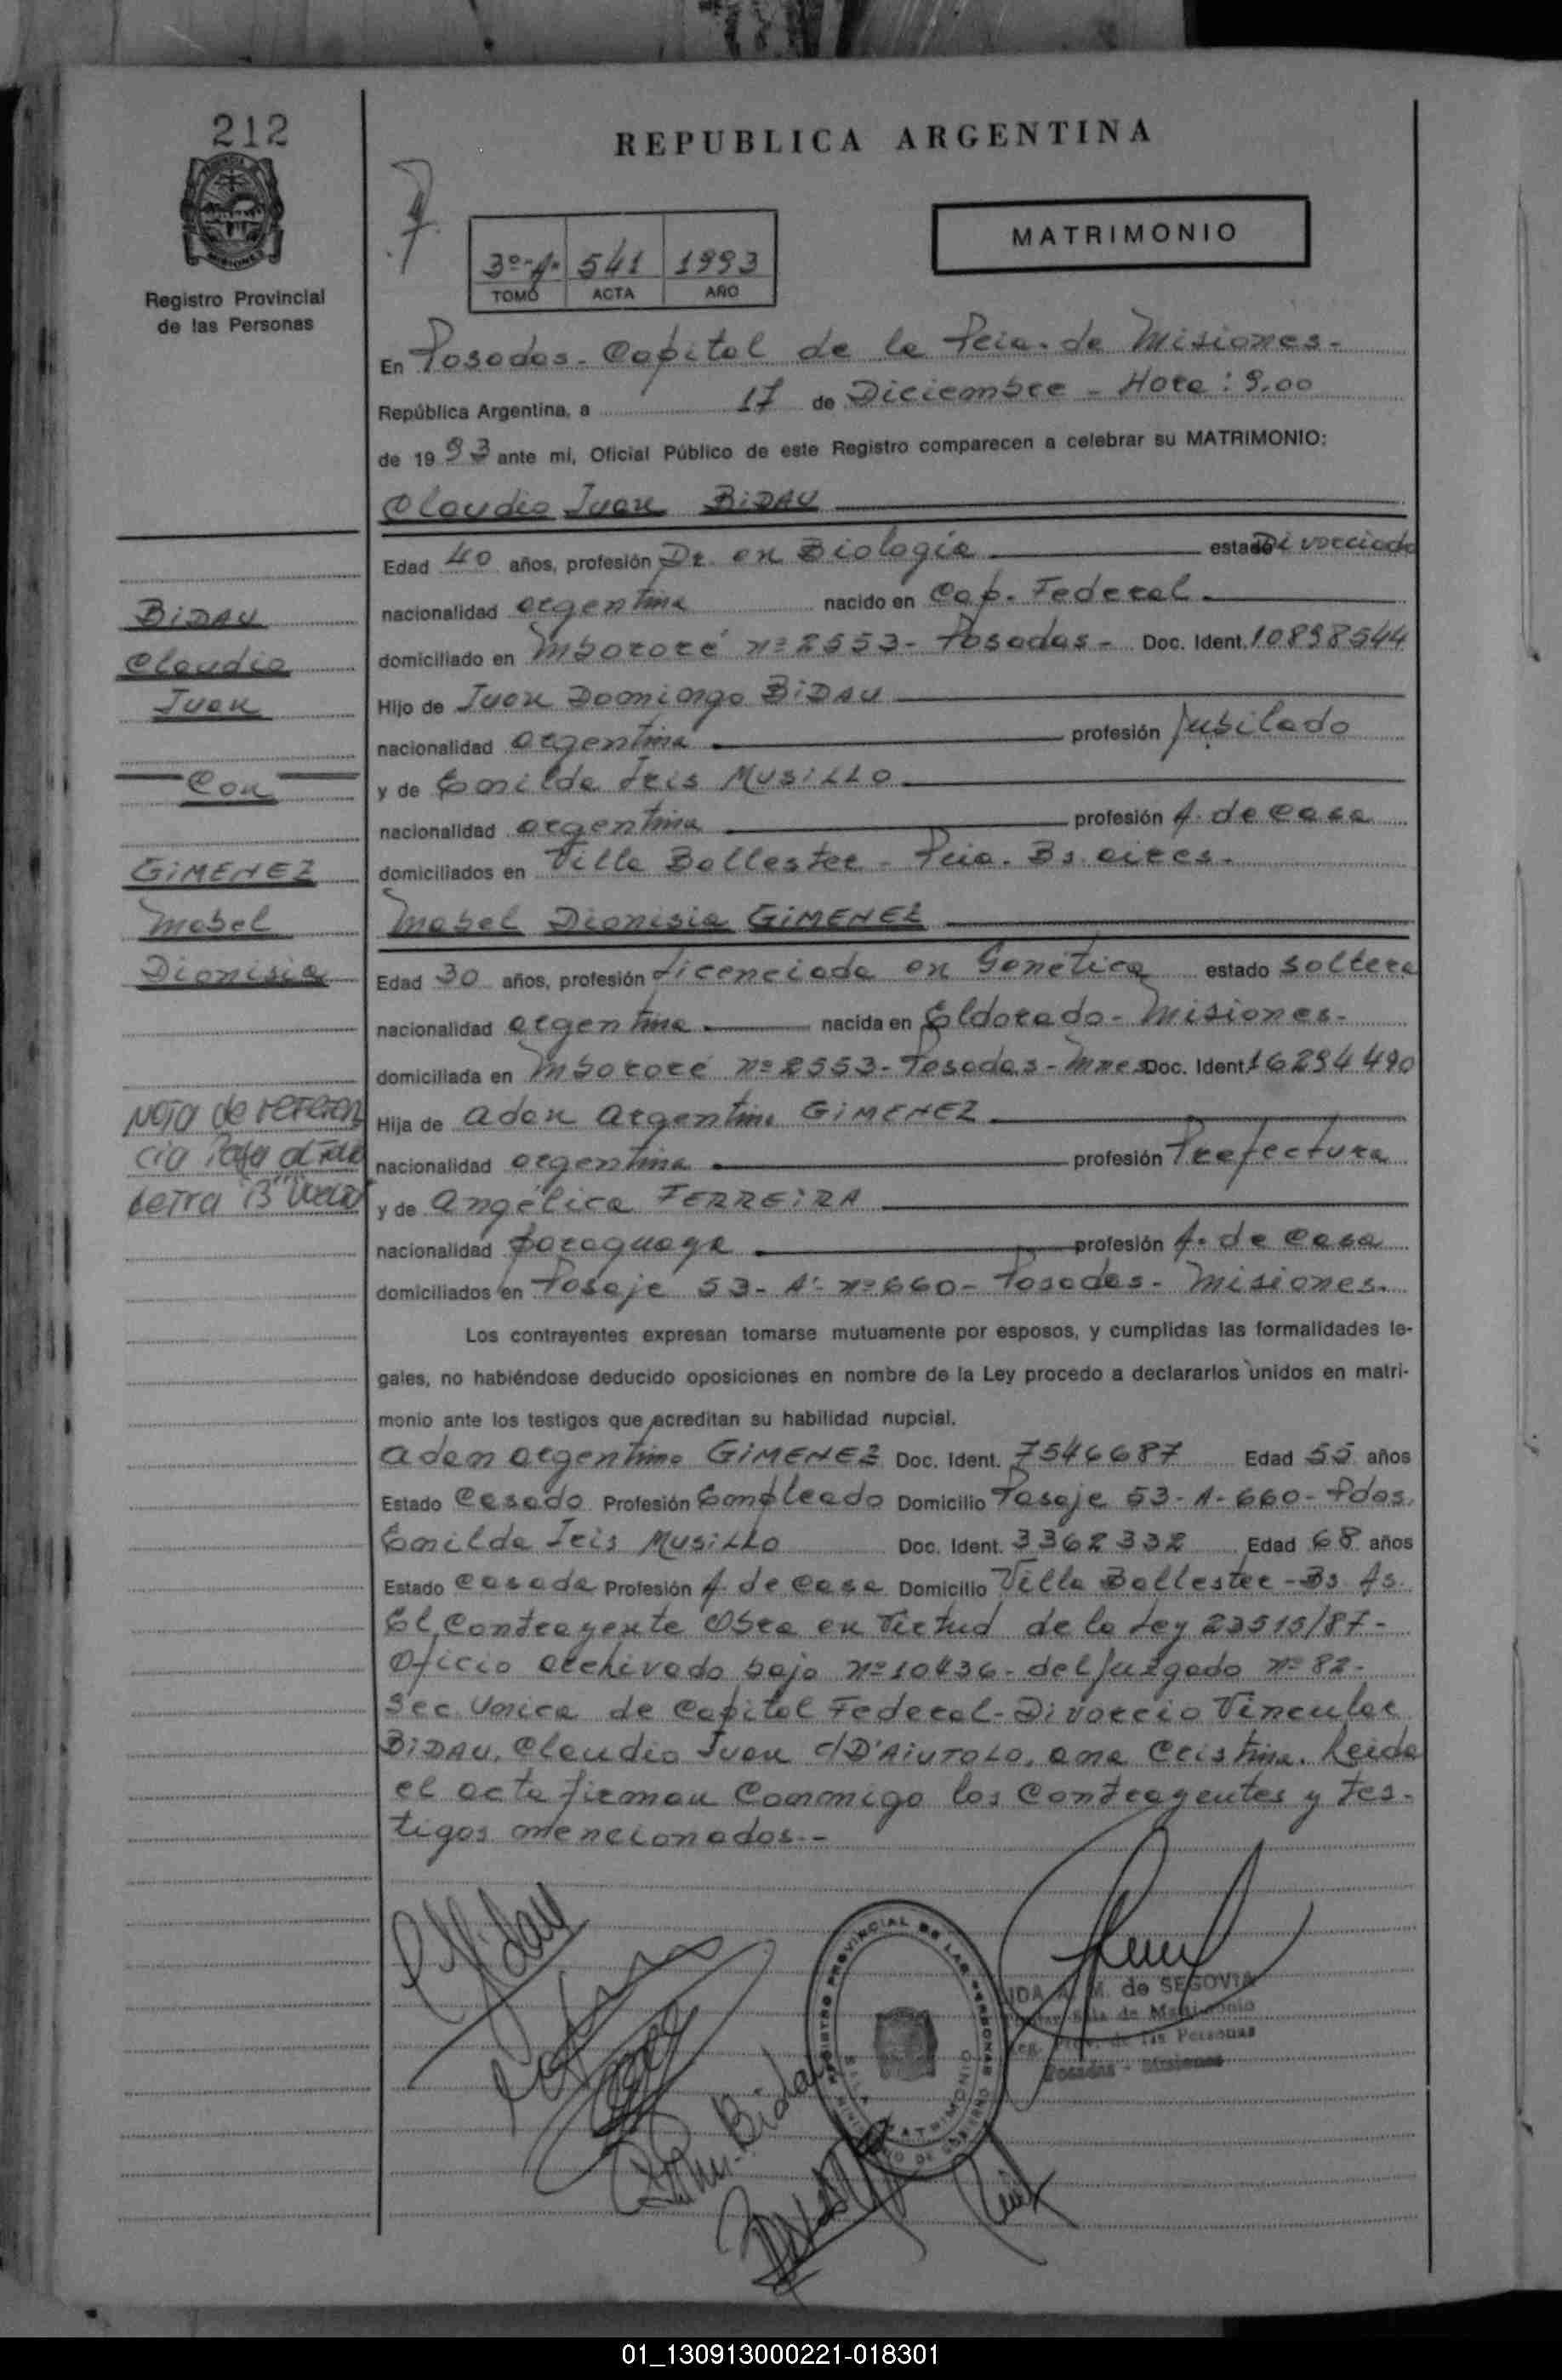 212
REPUBLICA ARGENTINA
MISIONES
Registro Provincial
de las Personas
3º-A- 541 1993
TOMO ACTA AÑO
MATRIMONIO
En Posadas - Capital de la Pcia. de Misiones -
República Argentina, a 17 de Diciembre - Hora : 9,00
de 1993 ante mi, Oficial Público de este Registro comparecen a celebrar su MATRIMONIO:
Claudio Juan BiDAU
Edad 40 años, profesión Dr. en Biología estado Divorciado
nacionalidad argentina nacido en Cap. Federal
domiciliado en Mbororé nº 2553 - Posadas - Doc. Ident. 10898544
Hijo de Juan Domingo BiDAU
nacionalidad argentina profesión Jubilado
y de Emilda Iris MUSiLLO
nacionalidad argentina profesión A. de casa
domiciliados en Villa Ballester - Pcia. Bs aires.
Mabel Dionisia GiMENEZ
Edad 30 años, profesión Licenciada en Genética estado soltera
nacionalidad argentina nacida en Eldorado - Misiones.
domiciliada en Mbororé nº 2553 - Posadas - Mnes Doc. Ident. 16294490
Hija de aden argentino GiMENEZ
nacionalidad argentina profesión Prefectura
y de angélica FERREiRA
nacionalidad paraguaya profesión A. de casa
domiciliados en Pasaje 53 - A - nº 660 - Posadas - Misiones.
BiDAU
Claudio
Juan
Con
GiMENEZ
Mabel
Dionisia
Nota de referen
cia
letra "B"
Los contrayentes expresan tomarse mutuamente por esposos, y cumplidas las formalidades le-
gales, no habiéndose deducido oposiciones en nombre de la Ley procedo a declararlos unidos en matri-
monio ante los testigos que acreditan su habilidad nupcial.
aden argentino GiMENEZ Doc. Ident. 7546687 Edad 55 años
Estado Casado Profesión Empleado Domicilio Pasaje 53 - A - 660 - Pdas.
Emilda Iris MUSiLLO Doc. Ident. 3362332 Edad 68 años
Estado casada Profesión A. de casa Domicilio Villa Ballester - Bs As.
El Contrayente Obra en Virtud de la Ley 23515/87 -
Oficio archivado bajo nº 10436 - del Juzgado nº 82 -
Sec Unica de Capital Federal - Divorcio Vincular
BiDAU, Claudio Juan c/D'AiUTOLO, ana Cristina. Leida
el acta firman Conmigo los Contrayentes y tes-
tigos mencionados.-
REGISTRO PROVINCIAL DE LAS PERSONAS
MATRIMONIO
M. de SEGOVIA
Sala de Matrimonio
Reg. Prov. de las Personas
Posadas - Misiones
01_130913000221-018301